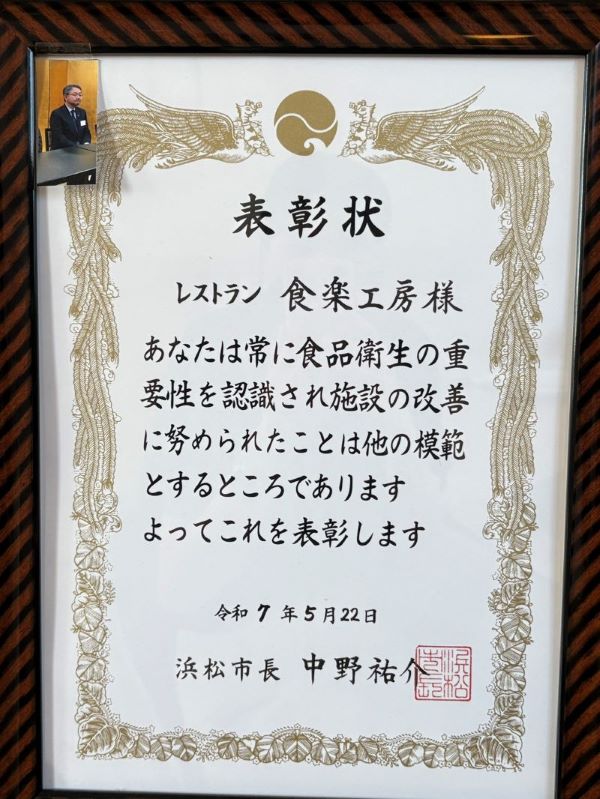 表彰状
レストラン 食楽工房様
あなたは常に食品衛生の重
要性を認識され施設の改善
に努められたことは他の模範
とするところであります
よってこれを表彰します
令和7年5月22日
浜松市長 中野祐介
浜松
市長